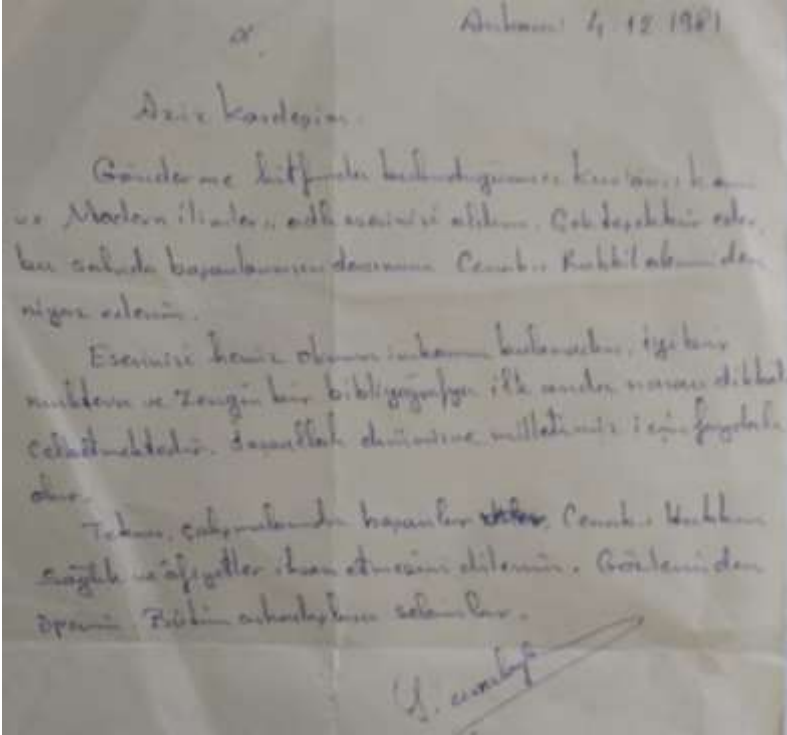 Ankara 4.12.1981
Aziz kardeşim.
Gönderme lütfunda bulunduğunuz Kur'an-ı kerim
ve Modern ilimler adlı eserinizi aldım. Çok teşekkür eder,
bu sahada başarılarınızın devamını Cenab-ı Rabbil aleminden
niyaz ederim.
Eserinizi henüz okuma imkanı bulamadım, iyi bir
muhteva ve zengin bir bibliyografya ilk anda nazarı dikkati
celbetmektedir. İnşaallah dinimize milletimiz için faydalı
olur.
Tekrar, çalışmalarında başarılar, Cenab-ı Hakkın
sağlık ve afiyetler ihsan etmesini dilerim. Gözlerinden
öperim Bütün arkadaşlara selamlar.